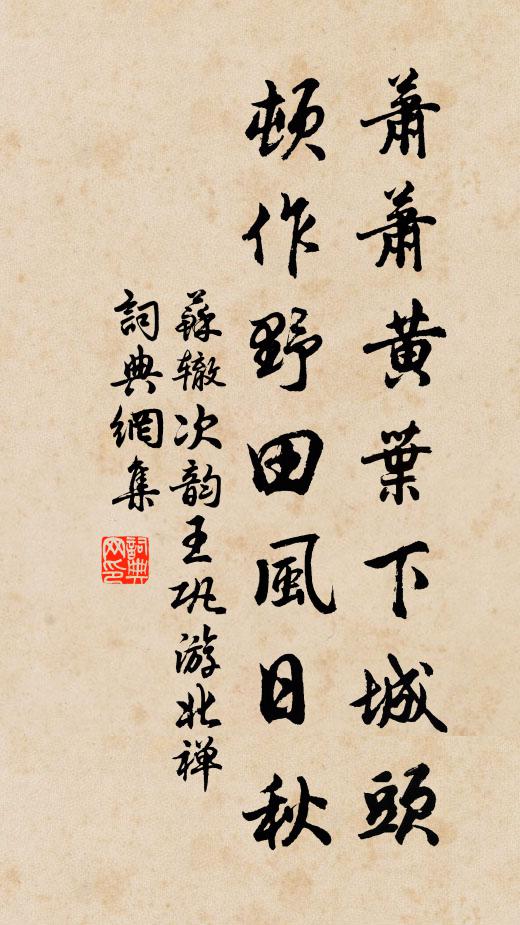 蕭蕭黄葉下城頭
頓作野田風日秋
蘇辙次韵王巩游北禅
詞典網集
詞典
网印